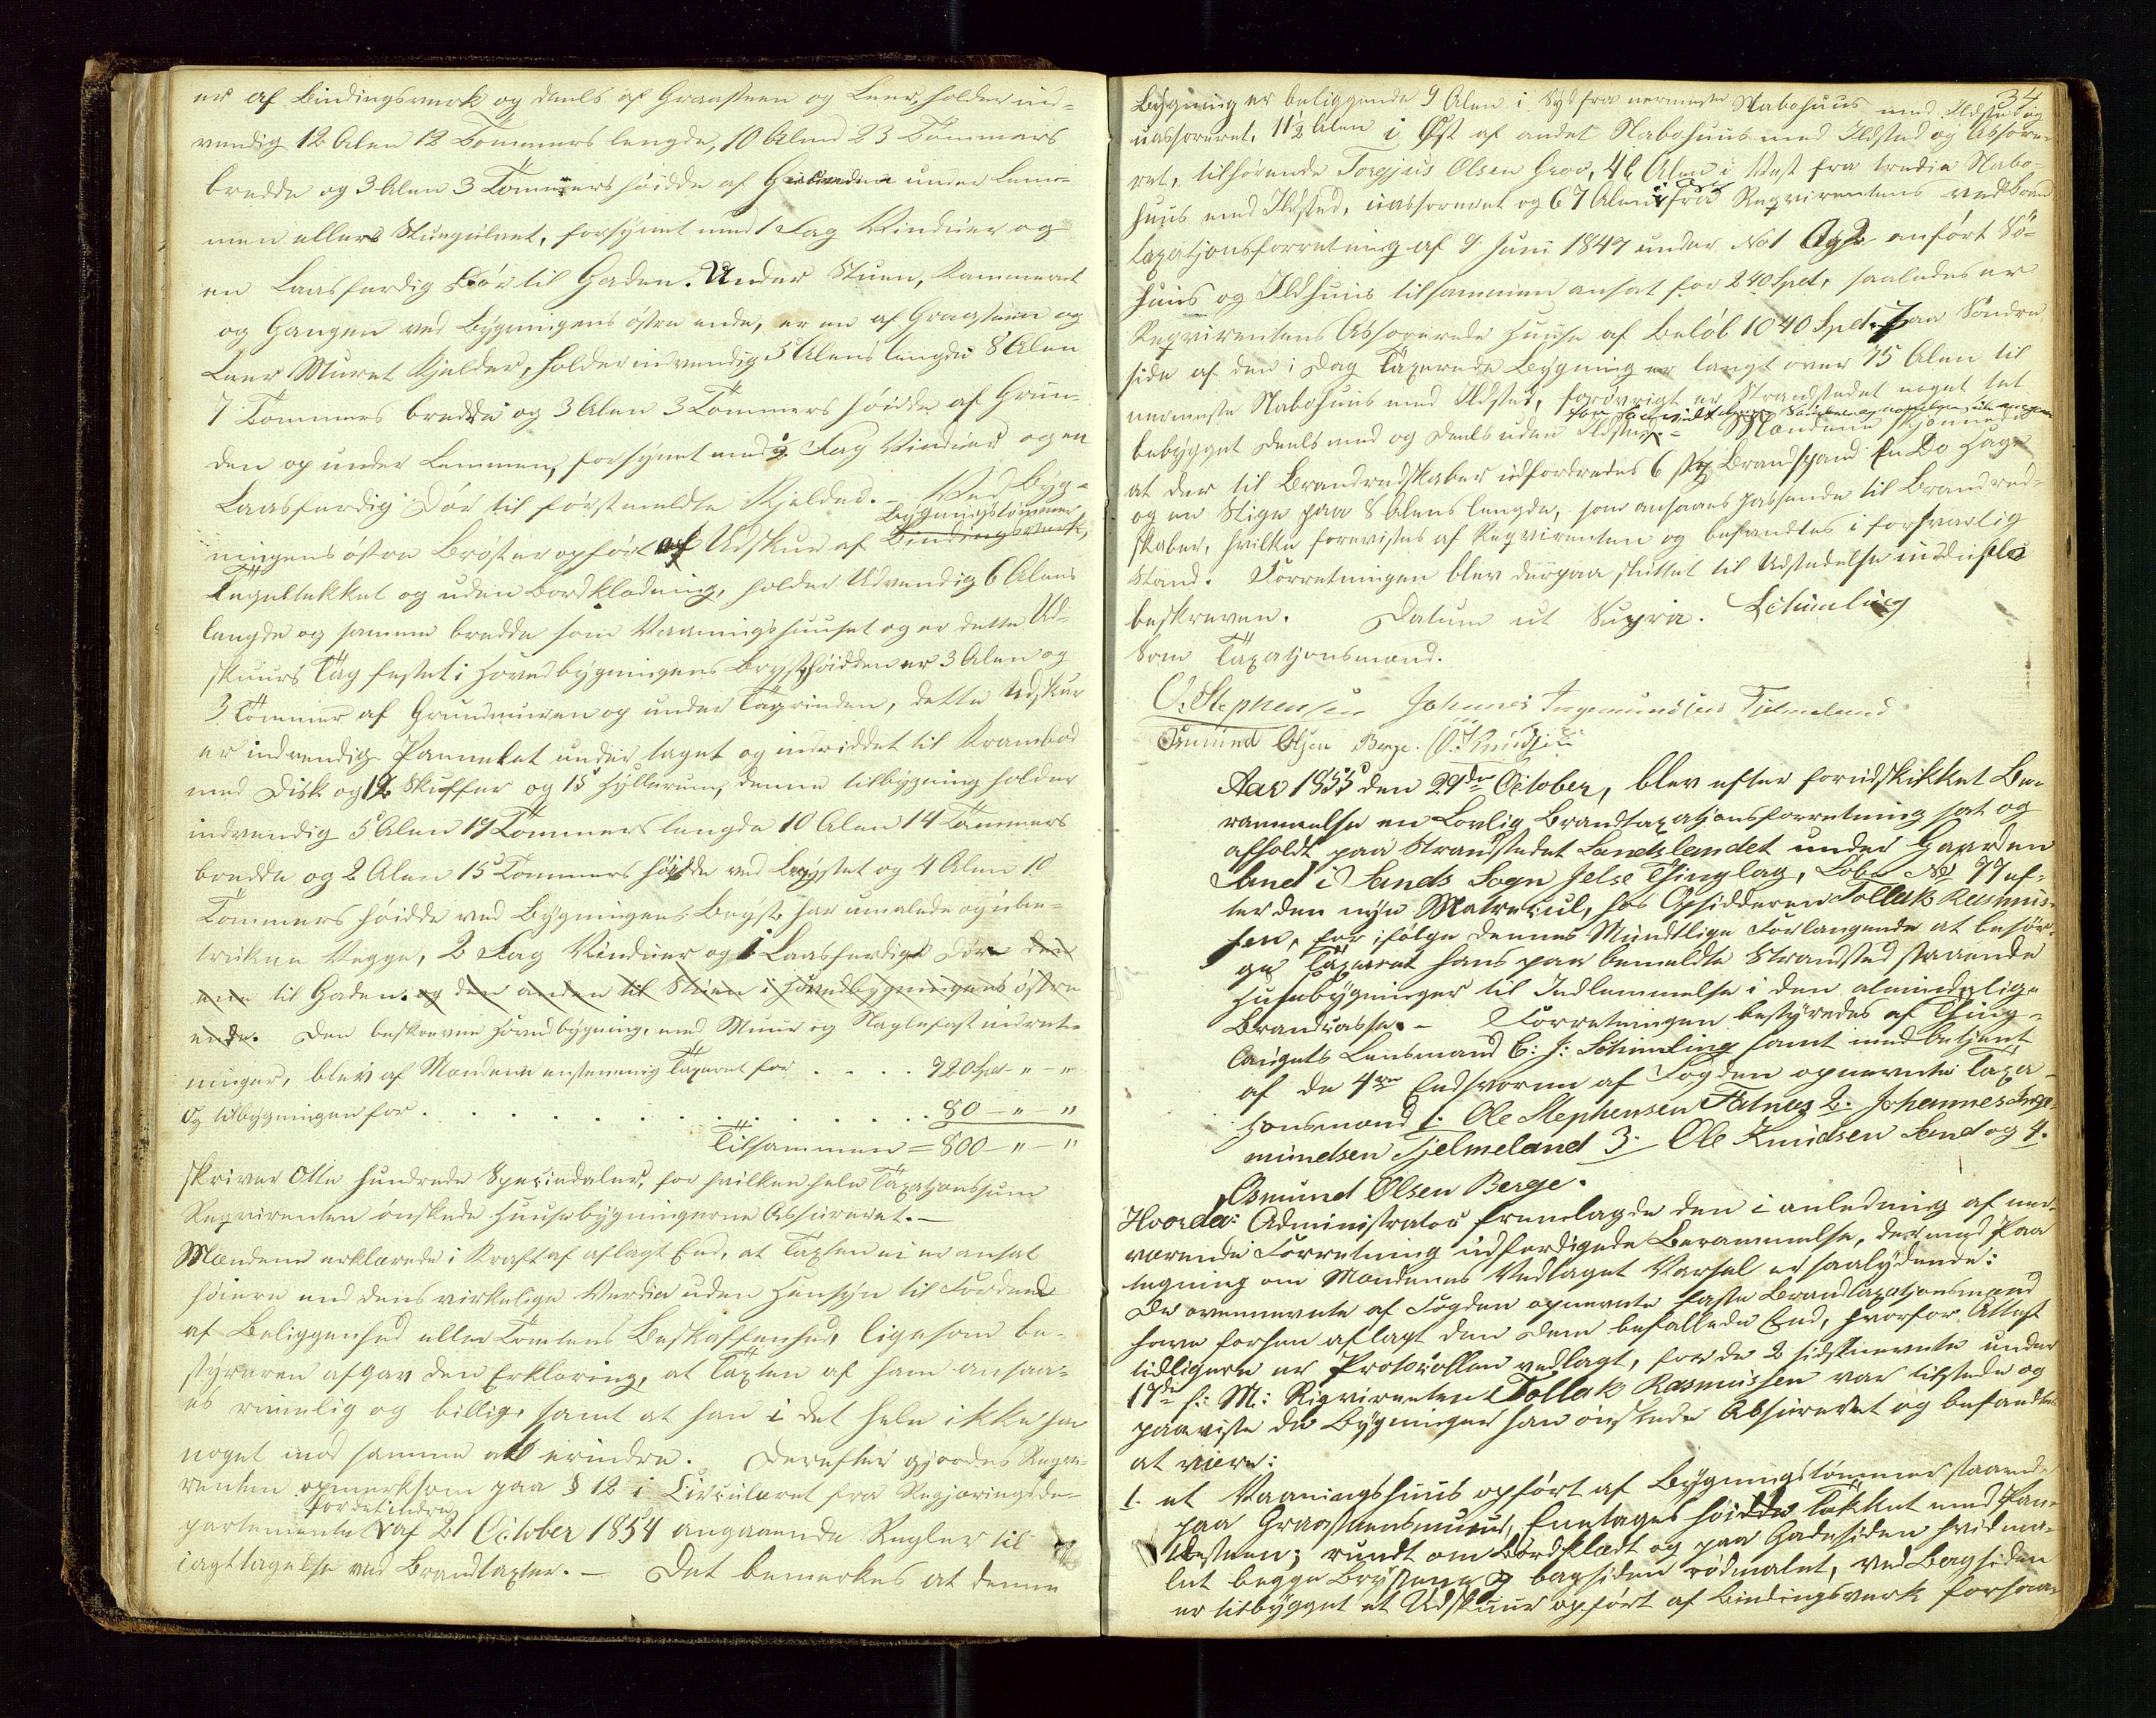 er af Bindingsverk og deels af Graasteen og Leer, holder ind-
vendig 12 Alen 12 Tommers lengde, 10 Alen 23 Tommers
bredde og 3 Alen 3 Tommers høidde af Grunden under Lem-
men ellers Stuegulvet, forsynet med 1 Fag Vinduer og
en Laasferdig Dør til Gaden. Under Stuen, Kammeret
og Gangen ved Bygningens østre ende, er en af Graasteen og
Leer Muret Kjelder, holder indvendig 5 Alens lengde 8 Alen
7 Tommers bredde og 3 Alen 3 Tommers høidde af Grun-
den op under Lemmen, forsynet med 2 Fag Vinduer og en
Laasferdig Dør til førstmeldte Kjelder. - Ved Byg-
ningens østre Brøster opført et Udskur af Bygningstømmer
Tegeltekket og uden Bordklædning, holder Udvendig 6 Alens
lengde og samme bredde som Vaaningshuuset og er dette Ud-
skuurs Tag festet i Hovedbygningens Bryst, høidden er 3 Alen og
3 Tommer af Grundmuren op under Tagrinden, dette Udskur
er indvendig Pannelet under taget og indriddet til Krambod
med Disk og 12 Skuffer og 15 Hyllerum, denne tilbygning holder
indvendig 5 Alen 19 Tommers lengde 10 Alen 14 Tommers
bredde og 2 Alen 15 Tommers høidde ved Brystet og 4 Alen 10
Tommers høidde ved Bygningens Bryst, har umalede og ube-
trukne Vegge, 2 Fag Vinduer og 1 Laasferdige Døre den
ene til Gaden. og den anden til Stuen i Hovedbygningens østre
ende. Den beskrevne Hovedbygning, med Muur og Naglefast indret-
ninger, blev af Mændene enstemmig Taxeret for . . . . 720 Spd - " - "
Og tilbygningen for . . . . . . . . . . 80 - " - "
Tilsammen = 800 - " - "
skriver Otte Hundrede Speciedaler, for hvilken hele Taxationssum
Reqvirenten ønskede Huusebygningerne Assureret. -
Mændene erklærede i Kraft af aflagt Eed, at Taxten ei er ansat
høiere end dens virkelige Verdie uden Hensyn til Fordele
af Beliggenhed eller Tomtens Beskaffenhed, ligesom be-
styreren afgav den Erklæring, at Taxten af ham ansaa-
es rimelig og billig, samt at han i det hele ikke har
noget imod samme at erindre. Derefter gjordes Reqvi-
renten opmerksom paa § 12 i Circulæret fra Regjeringsde-
partementet for det indre af 21 October 1854 angaaende Regler til
iagttagelse ved Brandtaxter. - Det bemerkes at denne
34
Bygning er beliggende 9 Alen i Syd fra nermeste Nabohuus med Ildsted og
uassureret, 11½ Alen i Øst af andet Nabohuus med Ildsted og Assure-
ret, tilhørende Torgjus Olsen Hroo, 46 Alen i Vest fra tredie Nabo-
huus med Ildsted, uassureret og 67 Alen i Øst fra Reqvirentens ved Brand
taxationsforretning af 9 Juni 1847 under No 1 og 2 anført Sø-
huus og Ildhuus tilsammen ansat for 240 Spd, saaledes er
Reqvirentens Assurerede Huuse af Beløb 1040 Spd. Paa Søndre
side af den i Dag Taxerede Bygning er langt over 75 Alen til
nermeste Nabohuus med Ildsted, forøvrigt er Strandstedet noget tet
bebygget deels med og deels uden Ildsted. - Mændene skjønnede
at der til Brandredskaber udfordredes 6 stk Brandspand En Do Hage
og en Stige paa 8 Alens lengde, som ansaaes passende til Brandred-
skaber, hvilke forevistes af Reqvirenten og befandtes i forsvarlig
Stand. Forretningen blev derpaa sluttet til Udstedelse
beskreven. Datum ut Supra. Schimling
Som Taxationsmænd.
O. Stephensen Johannes Ingemundsen Tjelmeland
Osmund Olsen Berge. O. Knudsen
Aar 1855 den 29de October, blev efter forudskikket Be-
rammelse en Lovlig Brandtaxationsforretning sat og
afholdt paa Strandstedet Sandslandet under Gaarden
Sand i Sands Sogn Jelse Thinglag, Løbe No 77 ef-
ter den nye Matrecul, hos Opsidderen Tollak Rasmus-
sen, for ifølge dennes Mundtlige Forlangende at besør-
ge Taxeret hans paa bemeldte Strandsted staaende
Husebygninger til Indlemmelse i den almindelige
Brandcasse. - Forretningen bestyredes af Thing-
laugets Lensmand C: J: Schimling samt med betjent
af de 4re Eedsvorne af Fogden opnevnte Taxa-
tionsmænd 1. Ole Stephensen Fatnes 2. Johannes Inge-
mundsen Tjelmeland 3. Ole Knudsen Sand og 4.
Osmund Olsen Berge.
Hvorda: Administrator fremlagde den i anledning af nær-
værende Forretning udferdigede Berammelse, der med Paa-
tegning om Mændenes Vedtaget Varsel er saalydende:
De ovennevnte af Fogden opnevnte faste Brandtaxationsmænd
have forhen aflagt den dem befallede Eed, hvorfor Attest
tidligere er Protocollen vedlagt, for de 2 sidstnevnte under
17de f: M: Reqvirenten Tollak Rasmussen var tilstede og
paaviste de Bygninger han ønskede Assureret og befandtes
at være:
1. et Vaaningshuus opført af Bygningstømmer staaende
paa Graasteensmuur, Enetages høidde Tekket med Pan-
desteen; rundt om Bordklædt og paa Gadesiden hvidma-
let begge Brysterne og bagsiden rødmalet, ved Bagsiden
er tilbygget et Udskuur opført af Bindingsverk forsaa-